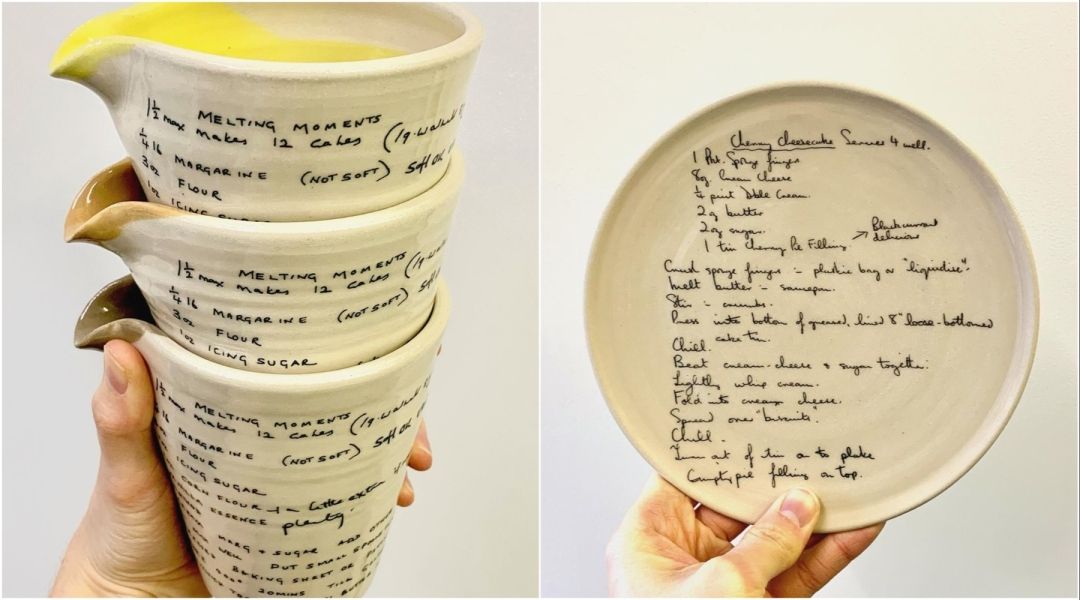 MELTING MOMENTS
1½ max makes 12 cakes (19.
¼ lb MARGARINE (NOT SOFT) Soft OK
3oz FLOUR
1oz ICING SUGAR
MELTING MOMENTS
1½ max makes 12 cakes (19.
¼ lb MARGARINE (NOT SOFT) Soft
3oz FLOUR
1oz ICING SUGAR
MELTING MOMENTS
1½ max makes 12 cakes (19.
¼ lb MARGARINE (NOT SOFT) Soft OK
FLOUR
ICING SUGAR
CORN FLOUR + - little extra
ESSENCE plenty.
MARG & SUGAR ADD
WELL PUT SMALL
BAKING SHEET
20MINS TILL
Cherry Cheesecake Serves 4 well.
1 Pkt. Sponge fingers
8oz Cream Cheese
¼ pint Dble Cream.
2oz butter
2oz sugar.
1 tin Cherry Pie Filling. → Blackcurrant
delicious
Crush sponge fingers :- plastic bag or "liquidise".
Melt butter :- saucepan.
Stir :- crumbs.
Press into bottom of greased, lined 8" loose-bottomed
cake tin.
Chill.
Beat cream-cheese & sugar together.
Lightly whip cream.
Fold into cream cheese.
Spread over "biscuits".
Chill.
Turn out of tin on to plate
pie filling on top.